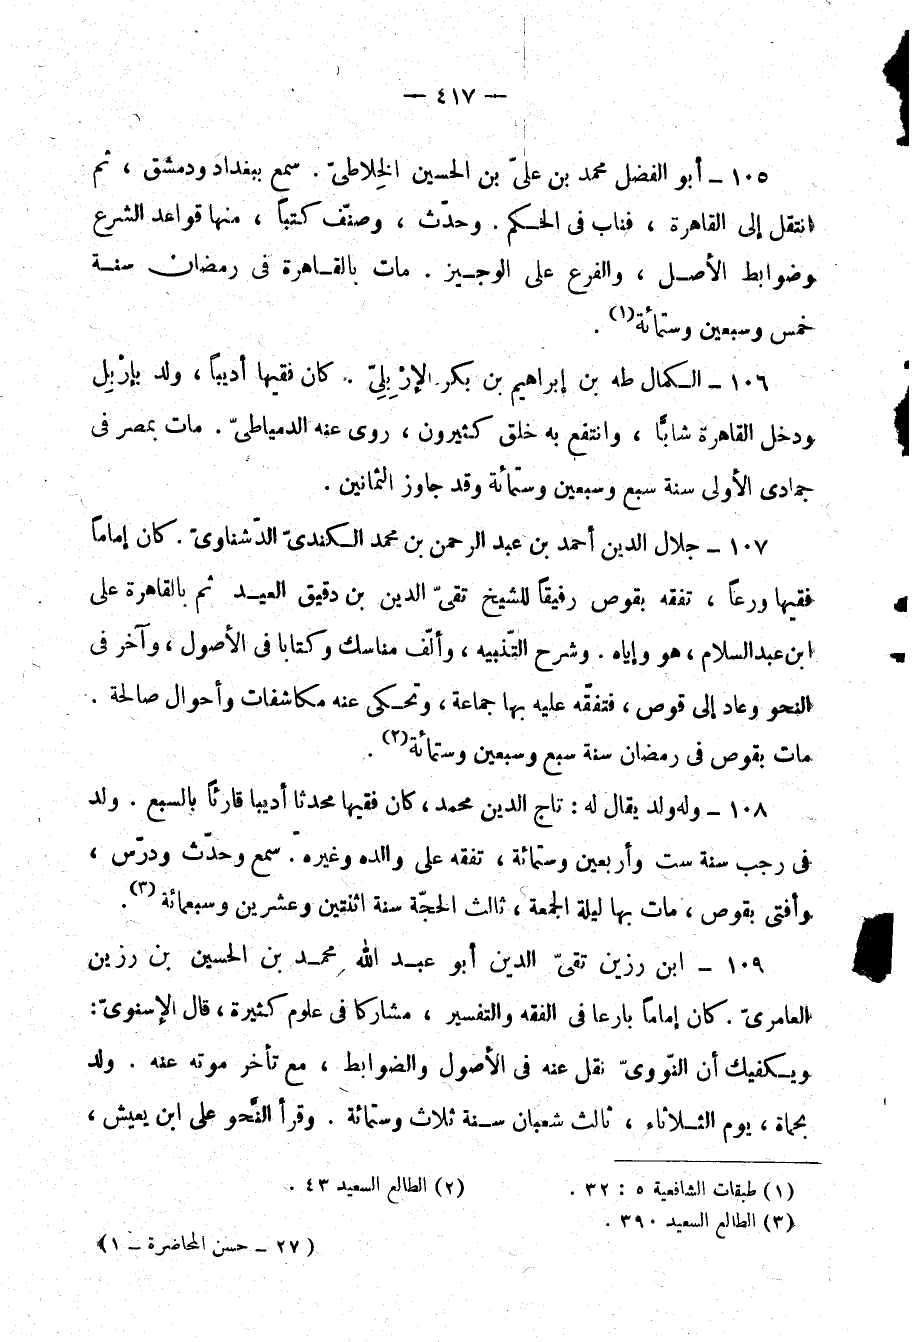 — ٤١٧ —
١٠٥ – أبو الفضل محمد بن علىّ بن الحسين الخِلاطىّ . سمع ببغداد ودمشق ، ثم
انتقل إلى القاهرة ، فناب فى الحكم . وحدّث ، وصنّف كتباً ، منها قواعد الشرع
وضوابط الأصل ، والفرع على الوجيز . مات بالقاهرة فى رمضان سنة
خمس وسبعين وستمائة(١) .
١٠٦ – الكمال طه بن إبراهيم بن بكر الإرْبِلِىّ . كان فقيها أديباً ، ولد بإرْبِل
ودخل القاهرة شابًّا ، وانتفع به خلق كثيرون ، روى عنه الدمياطىّ . مات بمصر فى
جمادى الأولى سنة سبع وسبعين وستمائة وقد جاوز الثمانين .
١٠٧ – جلال الدين أحمد بن عبد الرحمن بن محمد الكندىّ الدّشناوىّ . كان إماماً
فقيها ورعاً ، تفقه بقوص رفيقاً للشيخ تقىّ الدين بن دقيق العيد ثم بالقاهرة على
ابن عبد السلام ، هو وإياه . وشرح التّنبيه ، وألّف مناسك وكتابا فى الأصول ، وآخر فى
النحو وعاد إلى قوص ، فتفقّه عليه بها جماعة ، وتحكى عنه مكاشفات وأحوال صالحة .
مات بقوص فى رمضان سنة سبع وسبعين وستمائة(٢) .
١٠٨ – وله ولد يقال له : تاج الدين محمد ، كان فقيها محدثا أديبا قارئاً بالسبع . ولد
فى رجب سنة ست وأربعين وستمائة ، تفقه على والده وغيره . سمع وحدّث ودرّس ،
وأفتى بقوص ، مات بها ليلة الجمعة ، ثالث الحجّة سنة اثنتين وعشرين وسبعمائة (٣) .
١٠٩ – ابن رزين تقىّ الدين أبو عبد الله محمد بن الحسين بن رزين
العامرىّ . كان إماماً بارعا فى الفقه والتفسير ، مشاركا فى علوم كثيرة ، قال الإسنوىّ :
ويكفيك أن النّووىّ نقل عنه فى الأصول والضوابط ، مع تأخر موته عنه . ولد
بحماة ، يوم الثلاثاء ، ثالث شعبان سنة ثلاث وستمائة . وقرأ النَّحو على ابن يعيش ،
(١) طبقات الشافعية ٥ : ٣٢ . (٢) الطالع السعيد ٤٣ .
(٣) الطالع السعيد ٣٩٠ .
( ٢٧ – حسن المحاضرة – ١ )